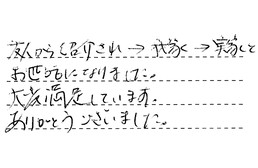 友人から紹介され→我家→実家と
お世話になりました。
大変満足しています。
ありがとうございました。